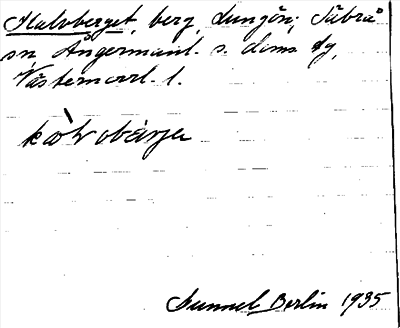 Kalvberget, berg, Lungön, Säbrå
sn Ångermanl. s. doms fg,
Västernorrl. l.
Gunnel Berlin 1935